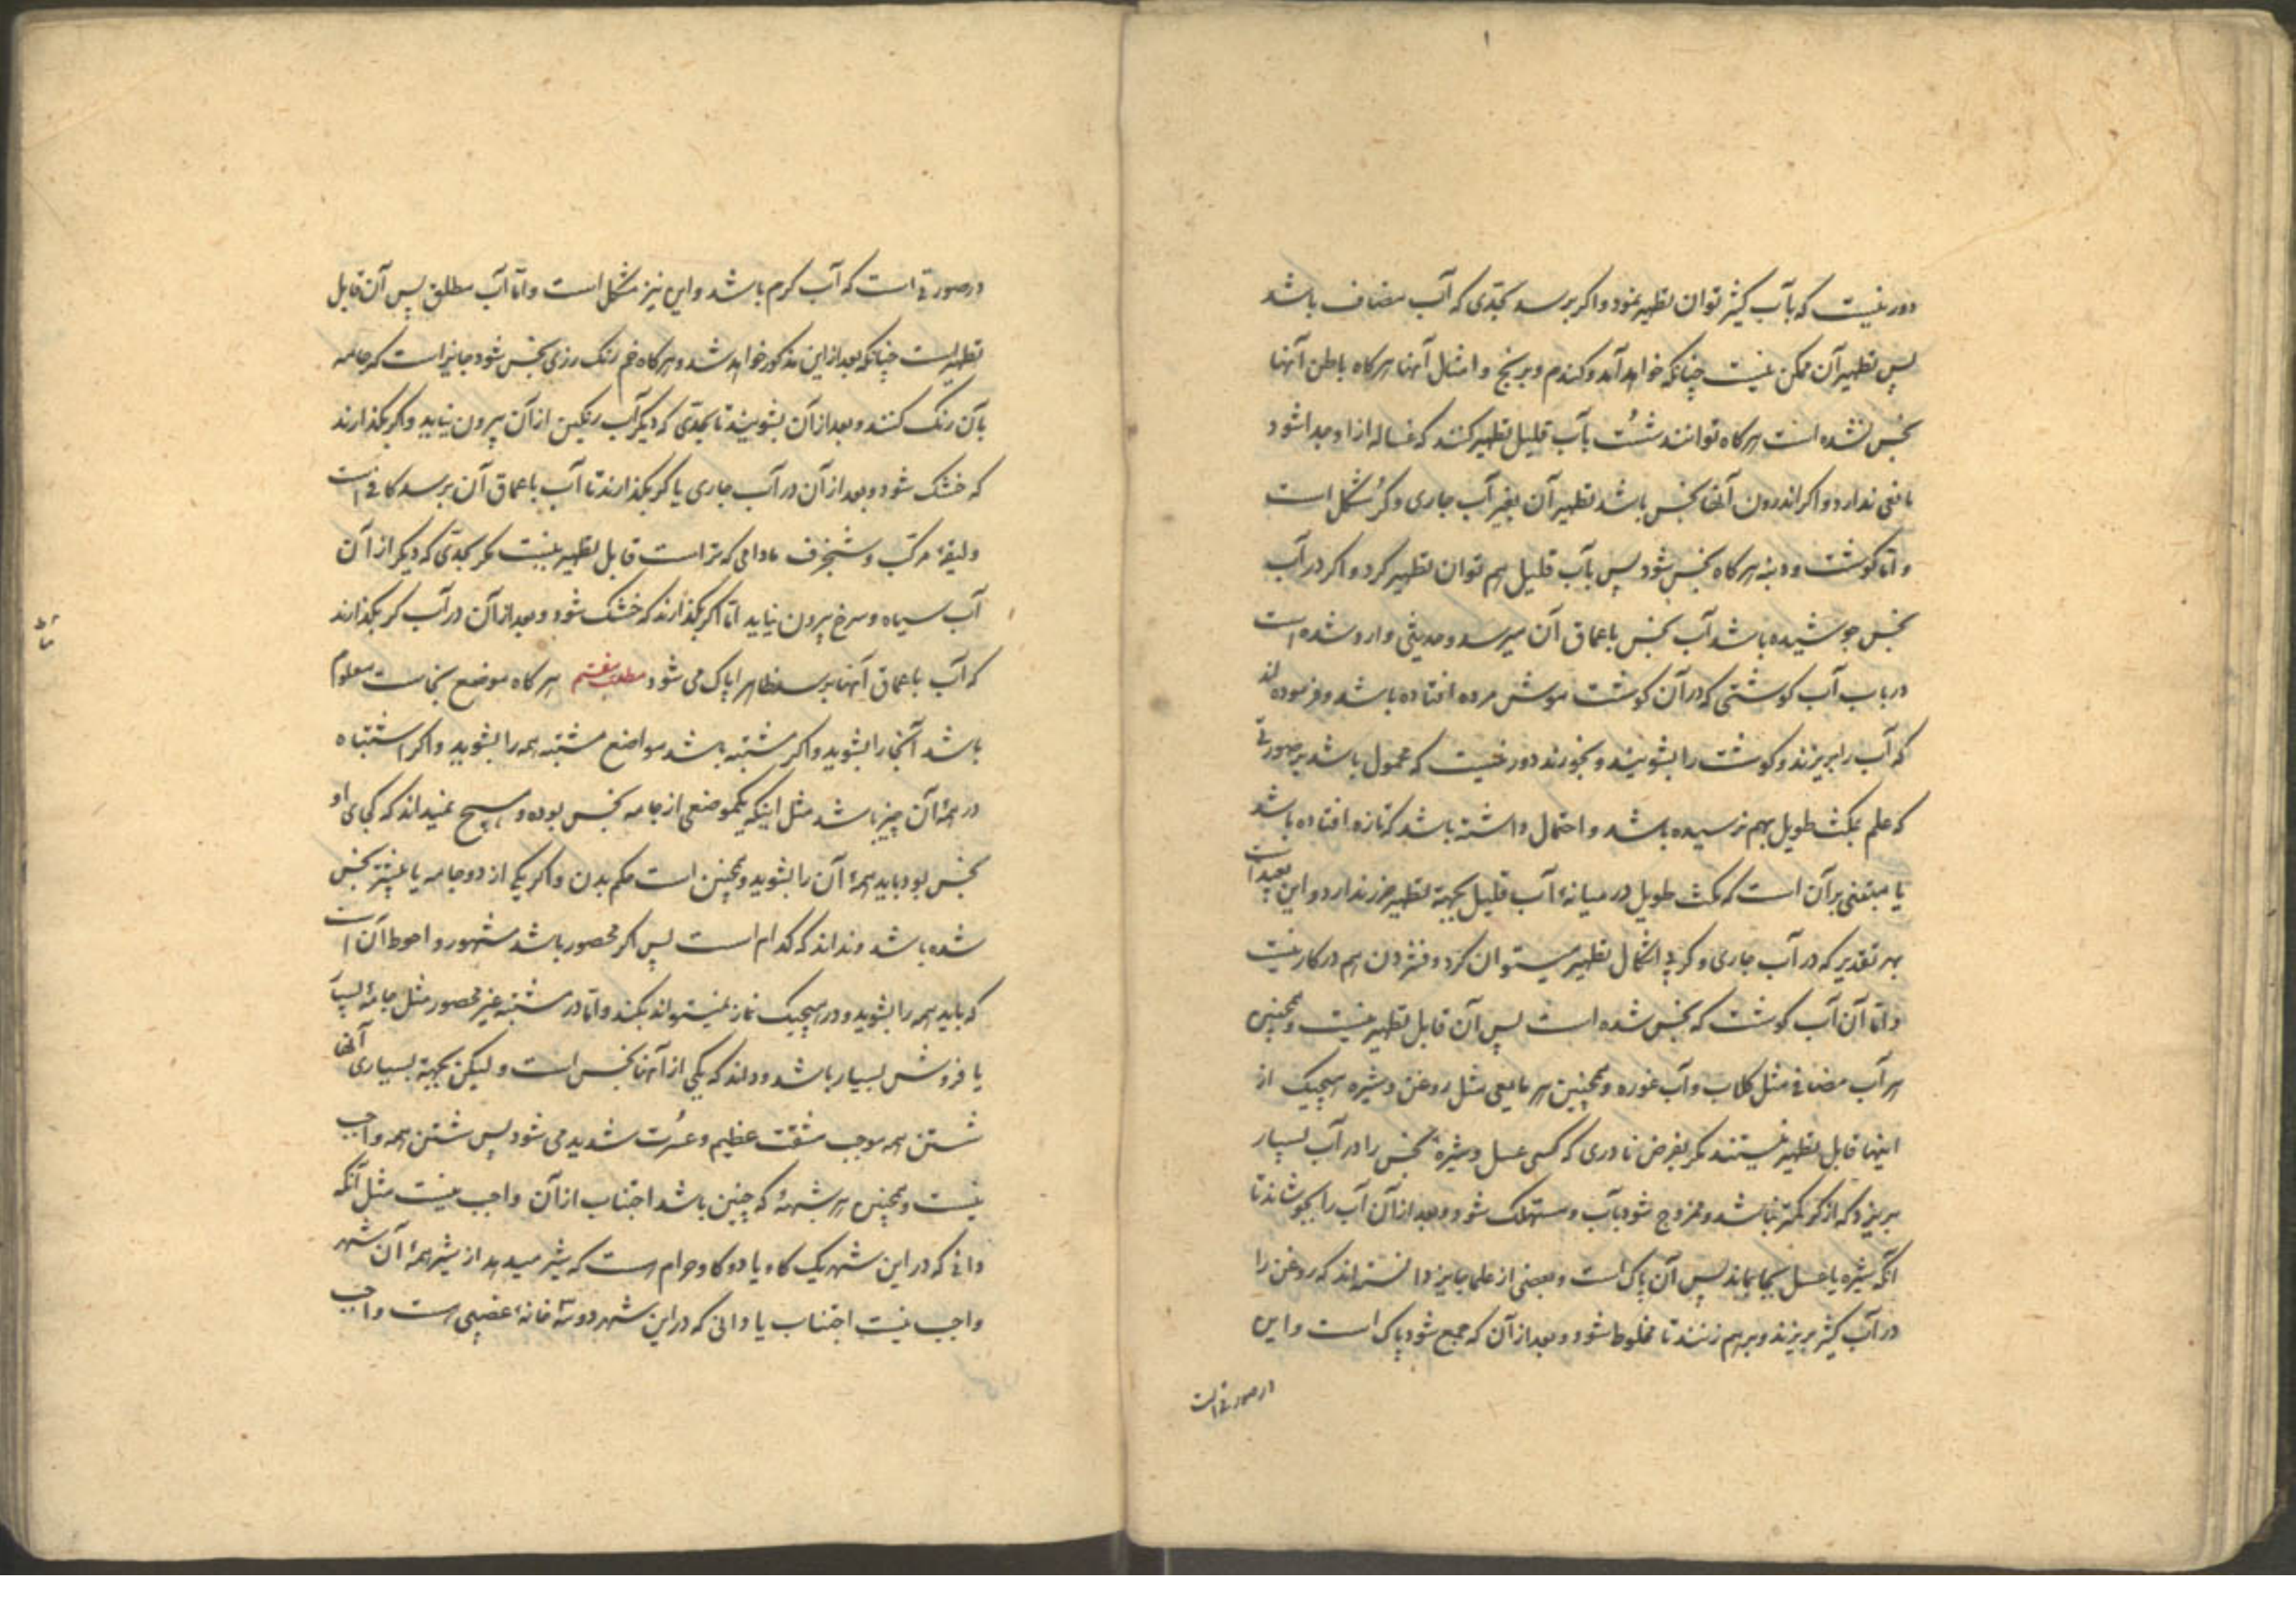 ۱
دور نیست که بآب کثیر توان تطهیر نمود و اکر برسد بحدی که آب مضاف باشد
پس تطهیر آن ممکن نیست چنانکه خواهد آمد و کندم و برنج و امثال آنها هرکاه باطن آنها
نجس نشده است هرکاه توانند شست بآب قلیل تطهیر کنند که غساله از او جدا شود
مانعی ندارد و اکر اندرون آنها نجس باشد تطهیر آن بغیر آب جاری و کر مشکل است
و اما کوشت و دنبه هرکاه نجس شود پس بآب قلیل هم توان تطهیر کرد و اکر در آب
نجس جوشیده باشد آب نجس باعماق آن میرسد و حدیثی وارد شده است
در باب آب کوشتی که در آن کوشت موش مرده افتاده باشد و فرموده اند
که آب را بریزند و کوشت را بشویند و بخورند دور نیست که محمول باشد بر صورتی
که علم بمکث طویل بهم نرسیده باشد و احتمال داشته باشد که تازه افتاده باشد
یا مبتنی بر آن است که مکث طویل در میانهٔ آب قلیل بجهة تطهیر ضرر ندارد و این بعید است
بهر تقدیر که در آب جاری و کر بی اشکال تطهیر میتوان کرد و فشردن هم در کار نیست
و اما آن آب کوشت که نجس شده است پس آن قابل تطهیر نیست و همچنین
هر آب مضافی مثل کلاب و آب غوره و همچنین هر مایعی مثل روغن و شیره هیچیک از
اینها قابل تطهیر نیستند مکر بفرض نادری که کسی عسل و شیرهٔ نجس را در آب بسیار
بریزد که از کر کمتر نباشد و ممزوج شود بآب و مستهلک شود و بعد از آن آب را بجوشاند تا
آنکه شیره یا عسل بجا بماند پس آن پاک است و بعضی از علما جایز دانسته اند که روغن را
در آب کثیر بریزند و بر هم زنند تا مخلوط شود و بعد از آن که جمع شود پاک است و این
در صورتی است
در صورتی است که آب کرم باشد و این نیز مشکل است و اما آب مطلق پس آن قابل
تطهیر است چنانکه بعد از این مذکور خواهد شد و هرکاه خم رنک رزی نجس شود جایز است که جامه
بآن رنک کنند و بعد از آن بشویند تا بحدی که دیکر آب رنکین از آن بیرون نیاید و اکر بکذارند
که خشک شود و بعد از آن در آب جاری یا کر بکذارند تا آب باعماق آن برسد کافی است
و لیقهٔ مرکب و شنجرف مادامی که تر است قابل تطهیر نیست مکر بحدی که دیکر از آن
آب سیاه و سرخ بیرون نیاید اما اکر بکذارند که خشک شود و بعد از آن در آب کر بکذارند
که آب باعماق آنها برسد ظاهرا پاک می شود مطلب هفتم هرکاه موضع نجاست معلوم
باشد آنجا را بشوید و اکر مشتبه باشد مواضع مشتبه همه را بشوید و اکر اشتباه
در همهٔ آن چیز باشد مثل اینکه یکموضعی از جامه نجس بوده و هیچ نمیداند که کجای او
نجس بود باید همهٔ آن را بشوید و همچنین است حکم بدن و اکر یکی از دو جامه یا بیشتر نجس
شده باشد و نداند که کدام است پس اکر محصور باشد مشهور و احوط آن است
که باید همه را بشوید و در هیچیک نماز نمیتواند بکند و اما در مشتبه غیر محصور مثل جامهٔ بسیار
یا فروش بسیار باشد و داند که یکی از آنها نجس است و لیکن بجهة بسیاری آنها
شستن همه موجب مشقت عظیم و عسرت شدید می شود پس شستن همه واجب
نیست و همچنین هر شبههٔ که چنین باشد اجتناب از آن واجب نیست مثل آنکه
دانی که در این شهر یک کاو یا دو کاو حرام است که شیر میدهد از شیر همهٔ آن شهر
واجب نیست اجتناب یا دانی که در این شهر دو سه خانهٔ غصبی است واجب